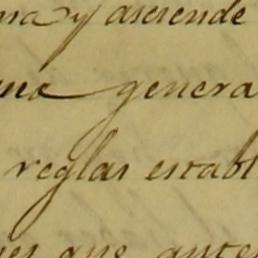 y asciende
genera
reglas establ
que ante